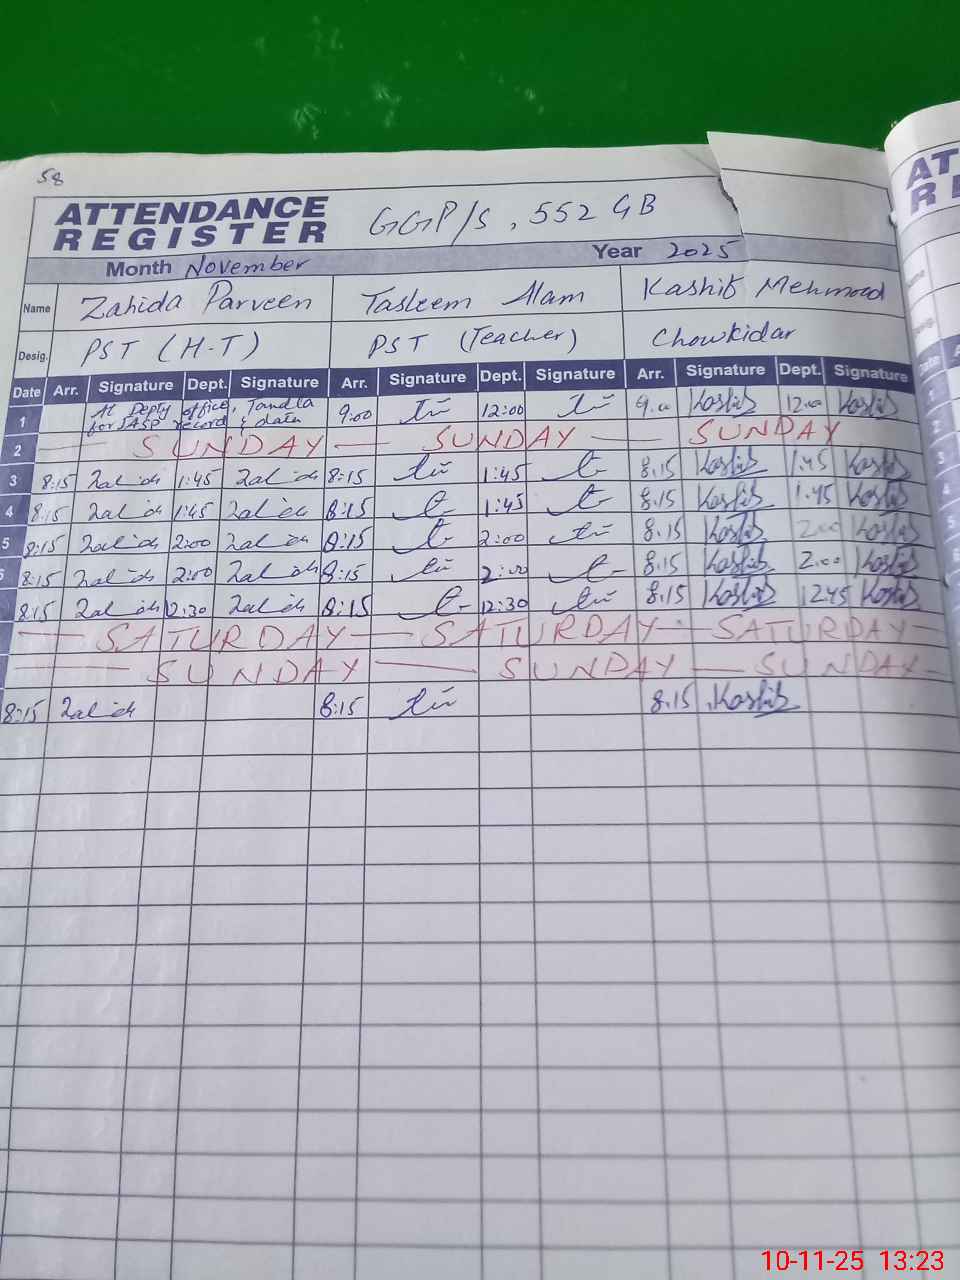 58
ATTENDANCE REGISTER GGP/S, 552 GB
Month November Year 2025
Name Zahida Parveen Tasleem Alam Kashif Mehmood
Desig. PST (H-T) PST (Teacher) Chowkidar
Date Arr. Signature Dept. Signature Arr. Signature Dept. Signature Arr. Signature Dept. Signature
1 At Depty office, Tandla for SASP record & data 9:00 12:00 9.00 Kashif 12.00 Kashif
2 SUNDAY SUNDAY SUNDAY
3 8:15 Zahida 1:45 Zahida 8:15 1:45 8.15 Kashif 1.45 Kashif
4 8:15 Zahida 1:45 Zahida 8:15 1:45 8.15 Kashif 1.45 Kashif
5 8:15 Zahida 2:00 Zahida 8:15 2:00 8.15 Kashif 2.00 Kashif
8:15 Zahida 2:00 Zahida 8:15 2:00 8.15 Kashif 2.00 Kashif
8:15 Zahida 12:30 Zahida 8:15 12:30 8.15 Kashif 12.45 Kashif
SATURDAY SATURDAY SATURDAY
SUNDAY SUNDAY SUNDAY
8:15 Zahida 8:15 8.15 Kashif
10-11-25 13:23